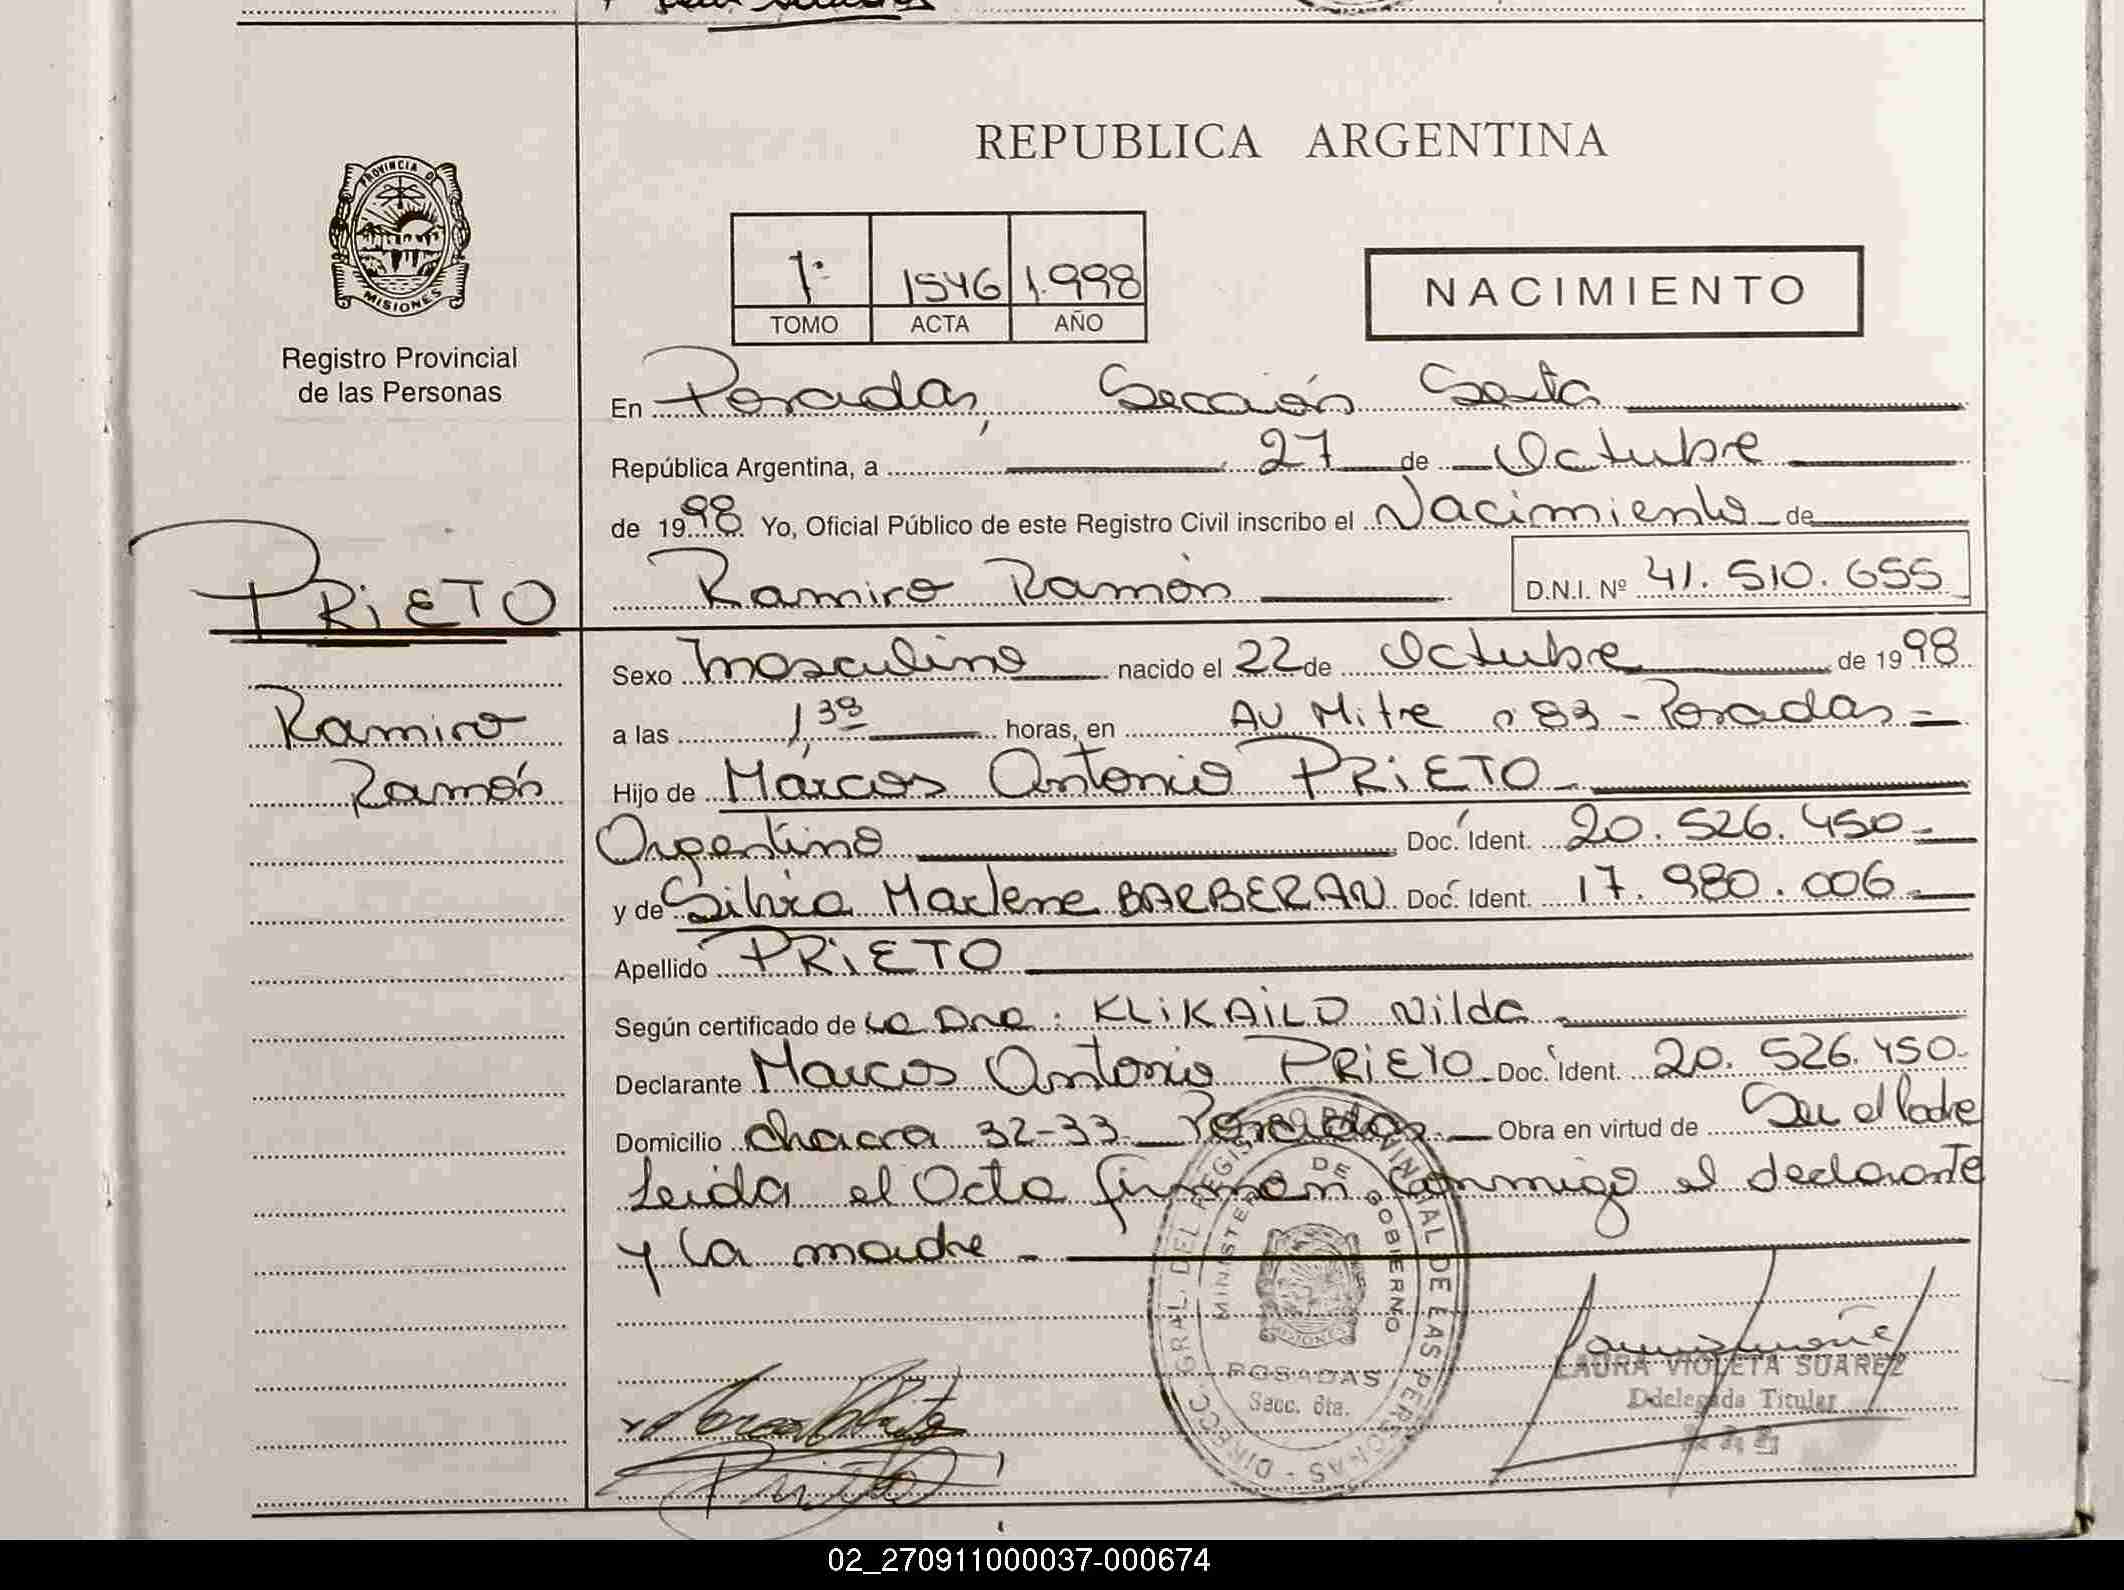 PROVINCIA DE
MISIONES
Registro Provincial
de las Personas
REPUBLICA ARGENTINA
1º 1546 1.998
TOMO ACTA AÑO
NACIMIENTO
En Posadas, Sección Sexta
República Argentina, a 27 de Octubre
de 1998 Yo, Oficial Público de este Registro Civil inscribo el Nacimiento de
PRiETO Ramiro Ramón D.N.I. Nº 41.510.655
Sexo Masculino nacido el 22 de Octubre de 1998
Ramiro
Ramón
a las horas, en AV Mitre n 83 - Posadas
Hijo de Marcos Antonio PRiETO
Argentino Doc. Ident. 20.526.450
y de Silvia Marlene BARBERAN Doc. Ident. 17.980.006
Apellido PRiETO
Según certificado de La Dra. KLiKAiLO Nilda
Declarante Marcos Antonio PRiETO Doc. Ident. 20.526.450
Domicilio chacra 32-33 Posadas Obra en virtud de Ser el Padre
Leida el Acta firman conmigo el declarante
y la madre
DIRECC. GRAL. DEL REGISTRO PROVINCIAL DE LAS PERSONAS
MINISTERIO DE GOBIERNO
MISIONES
POSADAS
Secc. 6ta.
LAURA VIOLETA SUAREZ
Ddelegada Titular
02_270911000037-000674